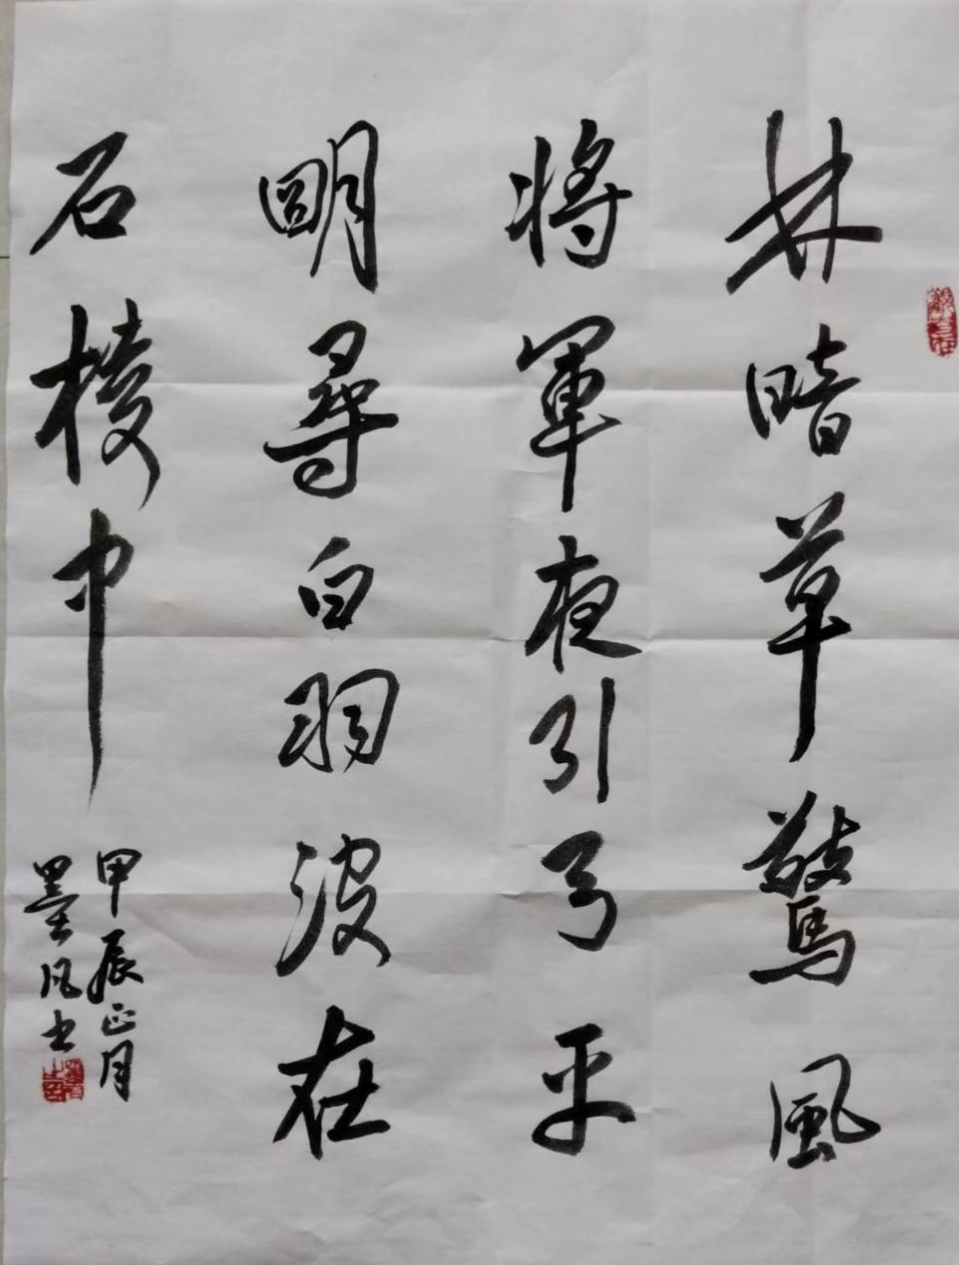 林暗草驚風
將軍夜引弓平
明尋白羽波在
石稜中
甲辰正月
墨风书